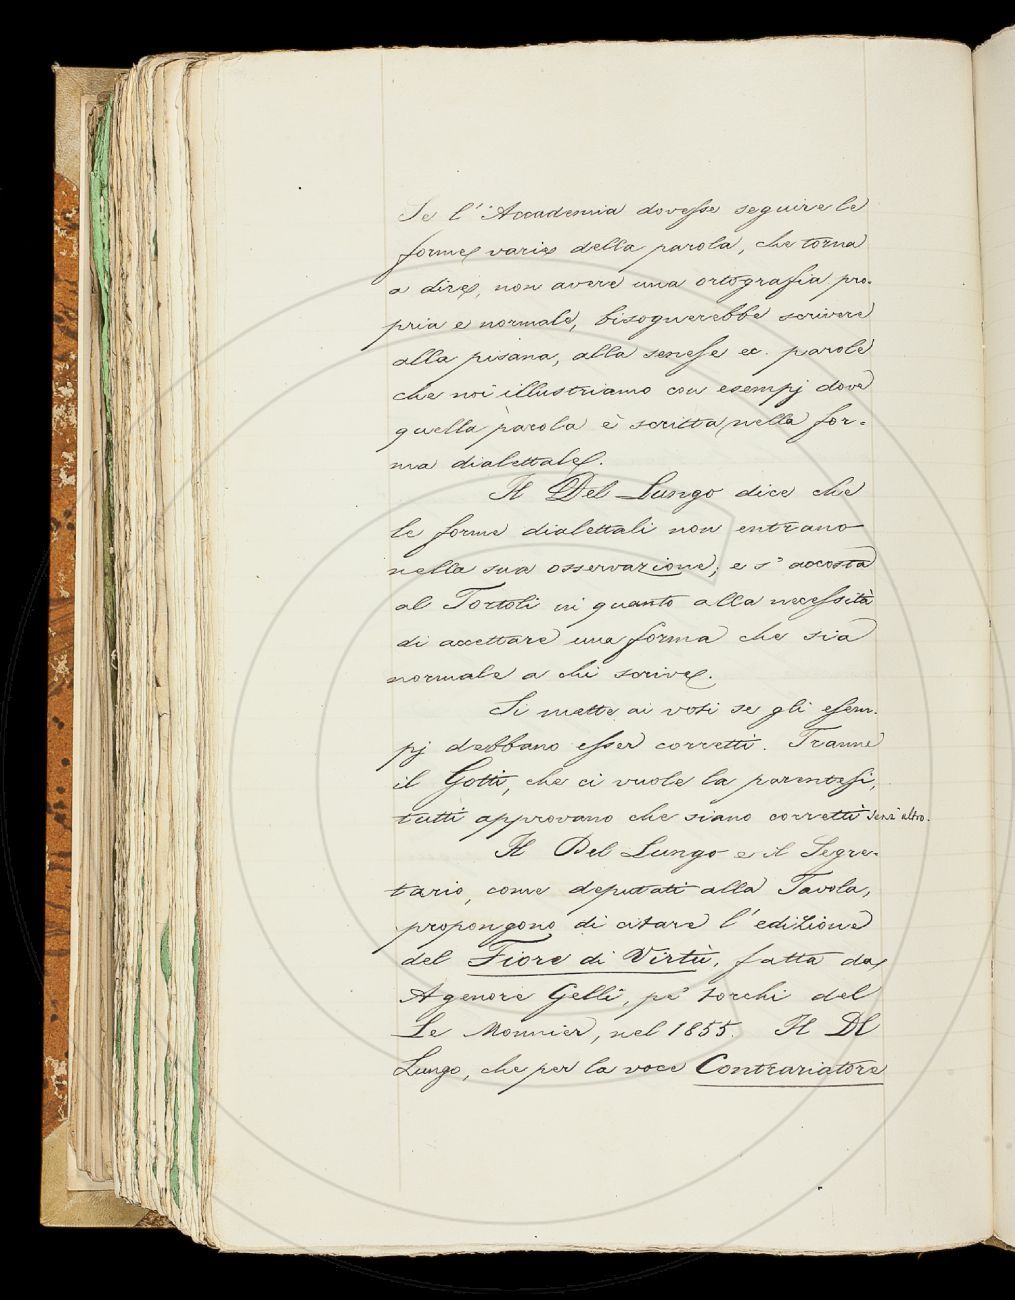 Se l'Accademia dovesse seguire le
forme varie della parola, che torna
a dire, non avere una ortografia pro-
pria e normale, bisognerebbe scrivere
alla pisana, alla senese ec. parole
che noi illustriamo con esempj dove
quella parola è scritta nella for-
ma dialettale.
Il Del Lungo dice che
le forme dialettali non entrano
nella sua osservazione; e s'accosta
al Tortoli in quanto alla necessità
di accettare una forma che sia
normale a chi scrive.
Si mette ai voti se gli esem-
pj debbano esser corretti. Tranne
il Gotti, che ci vuole la parentesi,
tutti approvano che siano corretti senz'altro.
Il Del Lungo e il Segre-
tario, come deputati alla Tavola,
propongono di citare l'edizione
del Fiore di Virtù, fatta da
Agenore Gelli, pe' torchi del
Le Monnier, nel 1855. Il Del
Lungo, che per la voce Contrariatore